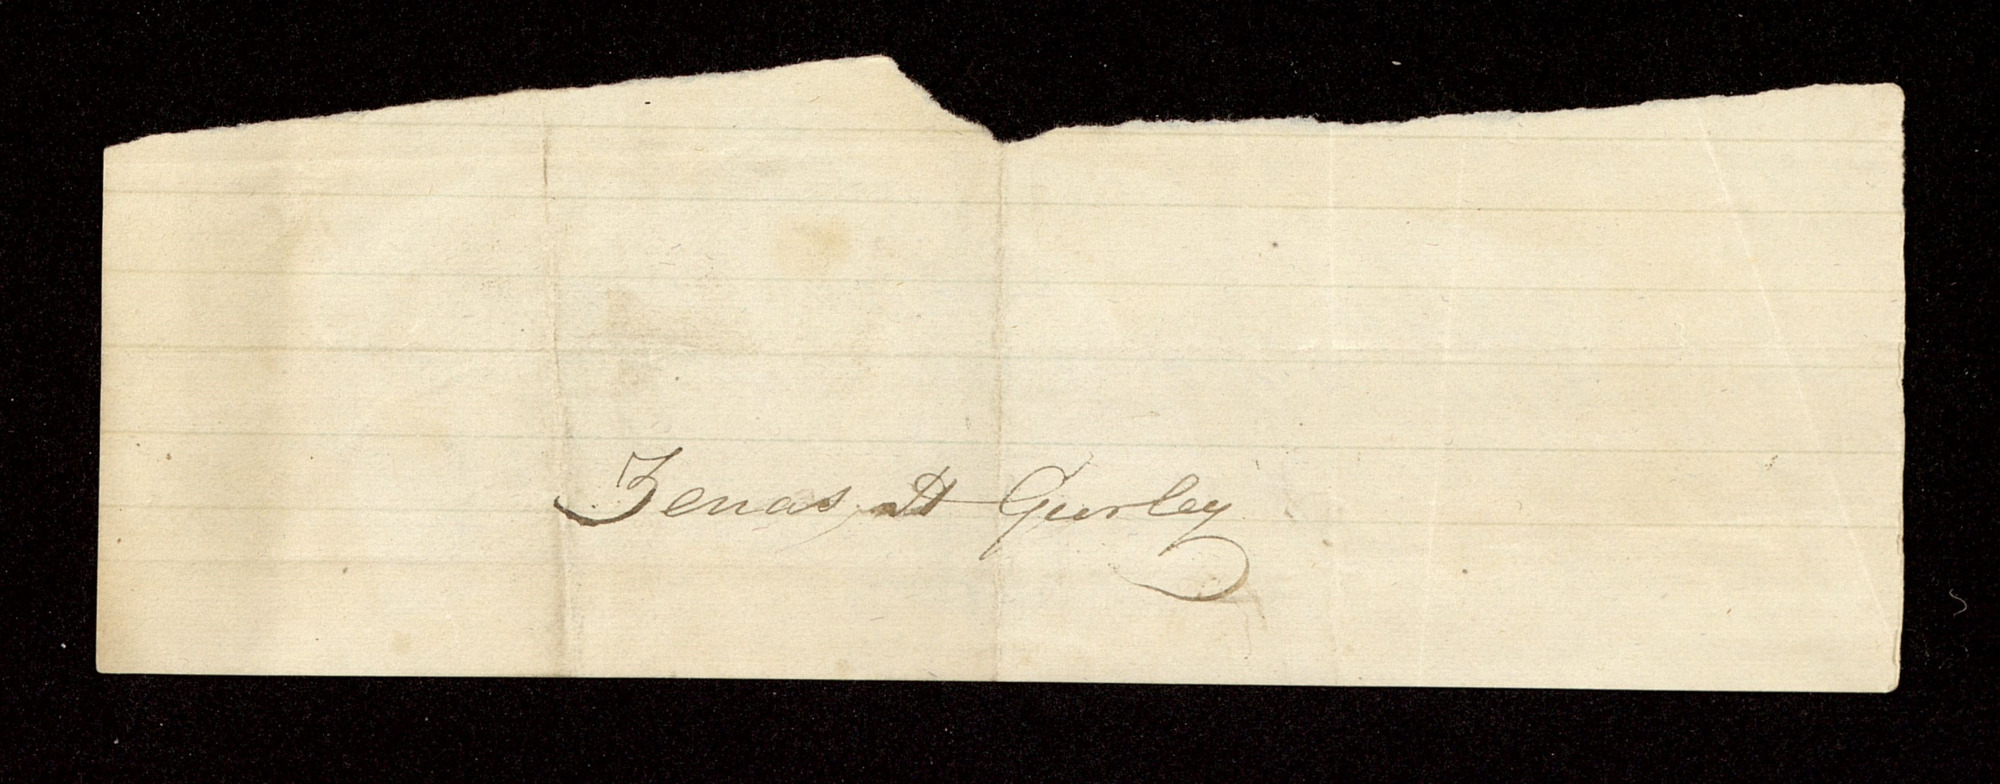 Zenas H Gurley